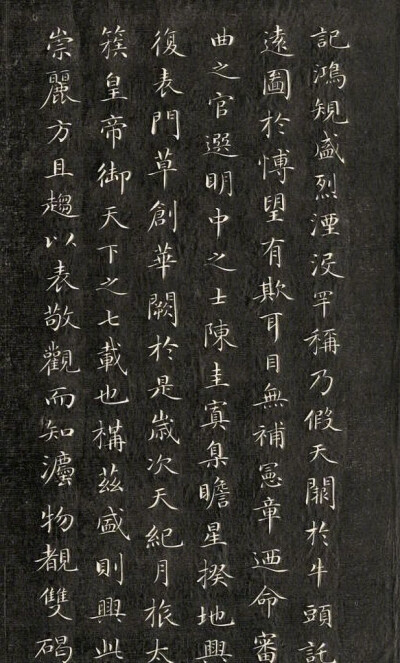 記鴻規盛烈湮沒罕稱乃假天闕於牛頭託
遠圖於博望有欺耳目無補憲章迺命審
曲之官選明中之士陳圭寘臬瞻星揆地興
復表門草創華闕於是歲次天紀月旅太
簇皇帝御天下之七載也構茲盛則興此
崇麗方且趨以表敬觀而知灋物覩雙碣